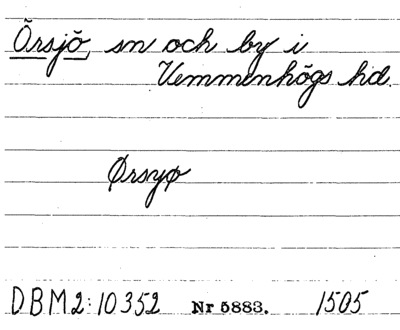 Örsjö, sn och by i
Vemmenhögs hd.
Ørsyø
DBM2:10352 Nr 5883. 1505